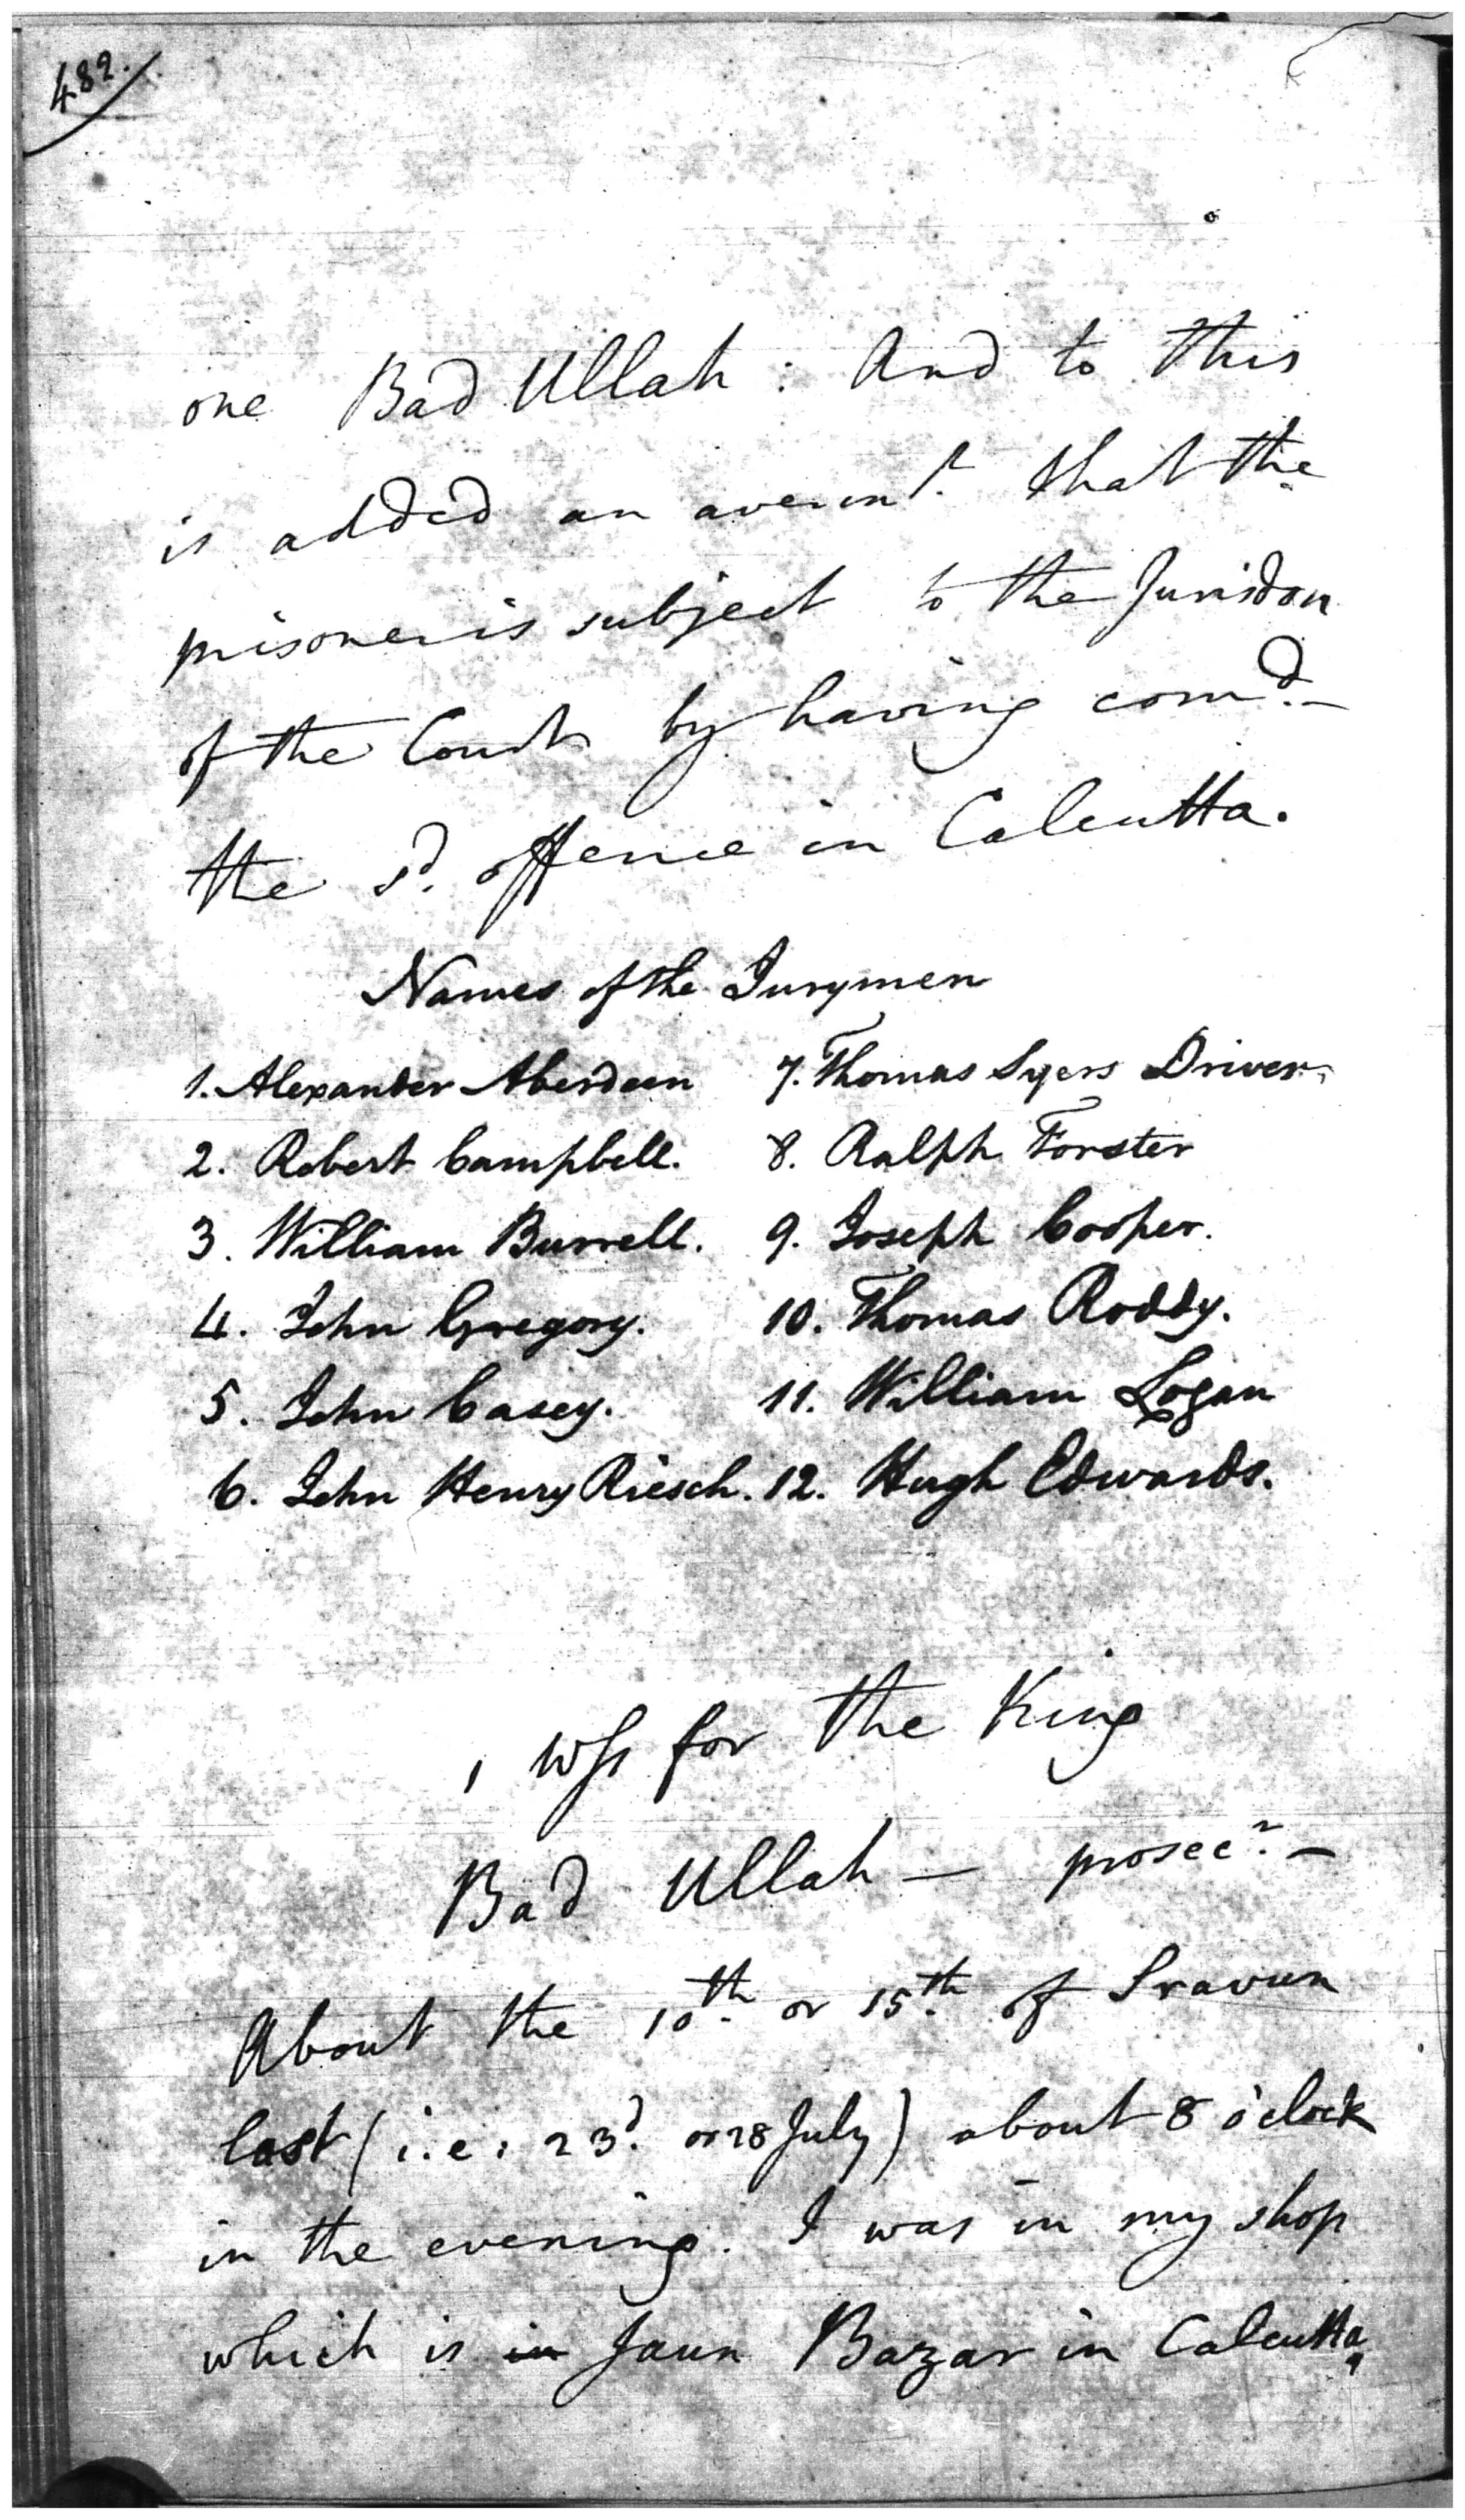 482.
one Bad Ullah : And to this
is added an averm.t that the
prisoner is subject to the Jurisdon
of the Court by having com.d —
the s.d offence in Calcutta.
Names of the Jurymen
1. Alexander Aberdeen 7. Thomas Syers Driver.
2. Robert Campbell. 8. Ralph Forster
3. William Burrell. 9. Joseph Cooper.
4. John Gregory. 10. Thomas Roddy.
5. John Casey. 11. William Logan
6. John Henry Riesch. 12. Hugh Edwards.
1 Wss for the King
Bad Ullah — prosec.r —
About the 10.th or 15.th of Sravun
last (i.e: 23.d or 28 July) about 8 o'clock
in the evening. I was in my shop
which is in Jaun Bazar in Calcutta,